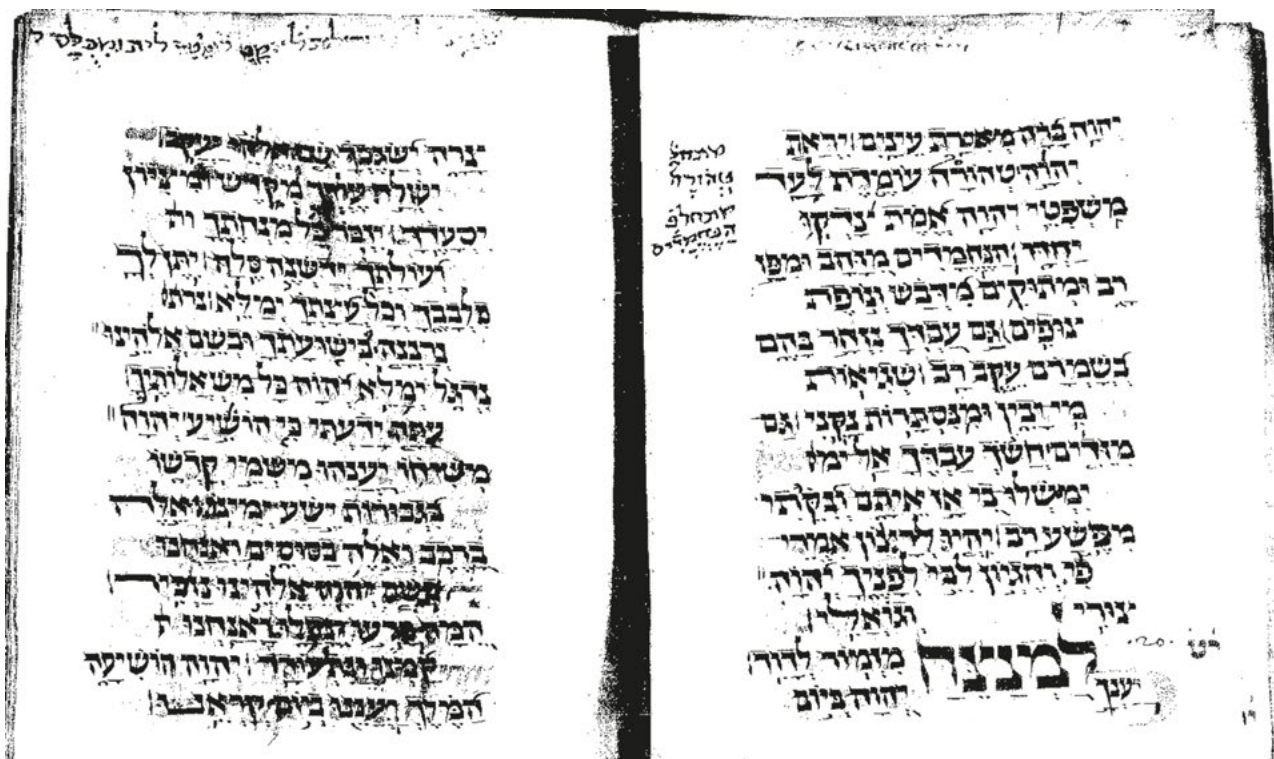 יהוה ברה מאירת עינים יראת
יהוה טהורה עומדת לעד
משפטי יהוה אמת צדקו
יחדו הנחמדים מזהב ומפז
רב ומתוקים מדבש ונופת
צופים גם עבדך נזהר בהם
בשמרם עקב רב שגיאות
מי יבין ומנסתרות נקני גם
מזדים חשך עבדך אל ימ
ימשלו בי אז איתם ונקיתי
מפשע רב יהיו לרצון אמרי
פי והגיון לבי לפניך יהוה
צורי וגואלי
למנצח מזמור לדוד
יענך יהוה ביום
טהורה
הנחמדים
.20.
צרה ישגבך שם אלהי יעקב
ישלח עזרך מקדש ומציון
יסעדך יזכר כל מנחתך
ועולתך ידשנה סלה יתן לך
כלבבך וכל עצתך ימלא
נרננה בישועתך ובשם אלהינו
נדגל ימלא יהוה כל משאלותיך
עתה ידעתי כי הושיע יהוה
משיחו יענהו משמי קדשו
בגבורות ישע ימינו אלה
ברכב ואלה בסוסים ואנחנו
בשם יהוה אלהינו נזכיר
המה כרעו ונפלו ואנחנו
קמנו ונתעודד יהוה הושיעה
המלך יעננו ביום קראנו